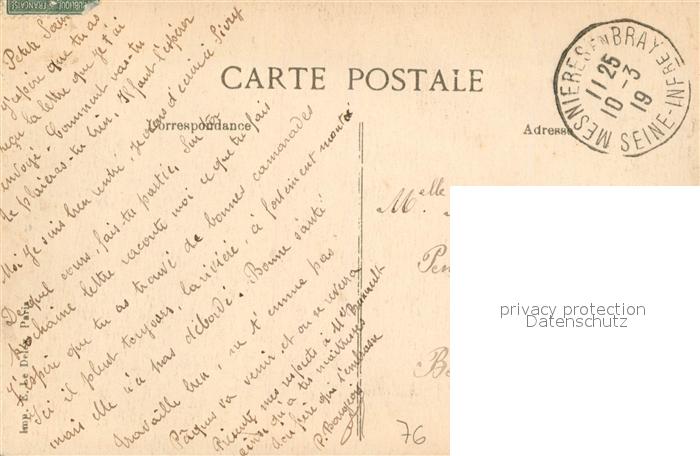 PUBLIQUE FRANÇAISE
CARTE POSTALE
Correspondance
Adresse
MESNIERES EN BRAY
SEINE-INFRE
11 25
10 -3
19
Petite Sœur
J'espère que tu as
reçu la lettre que je t'ai
envoyé. Comment vas-tu
te plairas-tu bien. Il faut l'espérer
Moi je suis bien rentré, je viens d'écrire à Sivry
De quel cours fais-tu partie. Sur ta
prochaine lettre raconte moi ce que tu fais
J'espère que tu as trouvé de bonnes camarades
Ici il pleut toujours, la rivière, a fortement monté
mais elle n'a pas débordé. Bonne santé
travaille bien, ne t'ennuie pas.
Pâques va venir et on se reverra
Présente mes respects à Mlle
ainsi qu'à tes maîtresses
Ton frère qui t'embrasse
P.
Melle
Pen
Be
Imp. E. Le Deley, Paris
76
privacy protection
Datenschutz